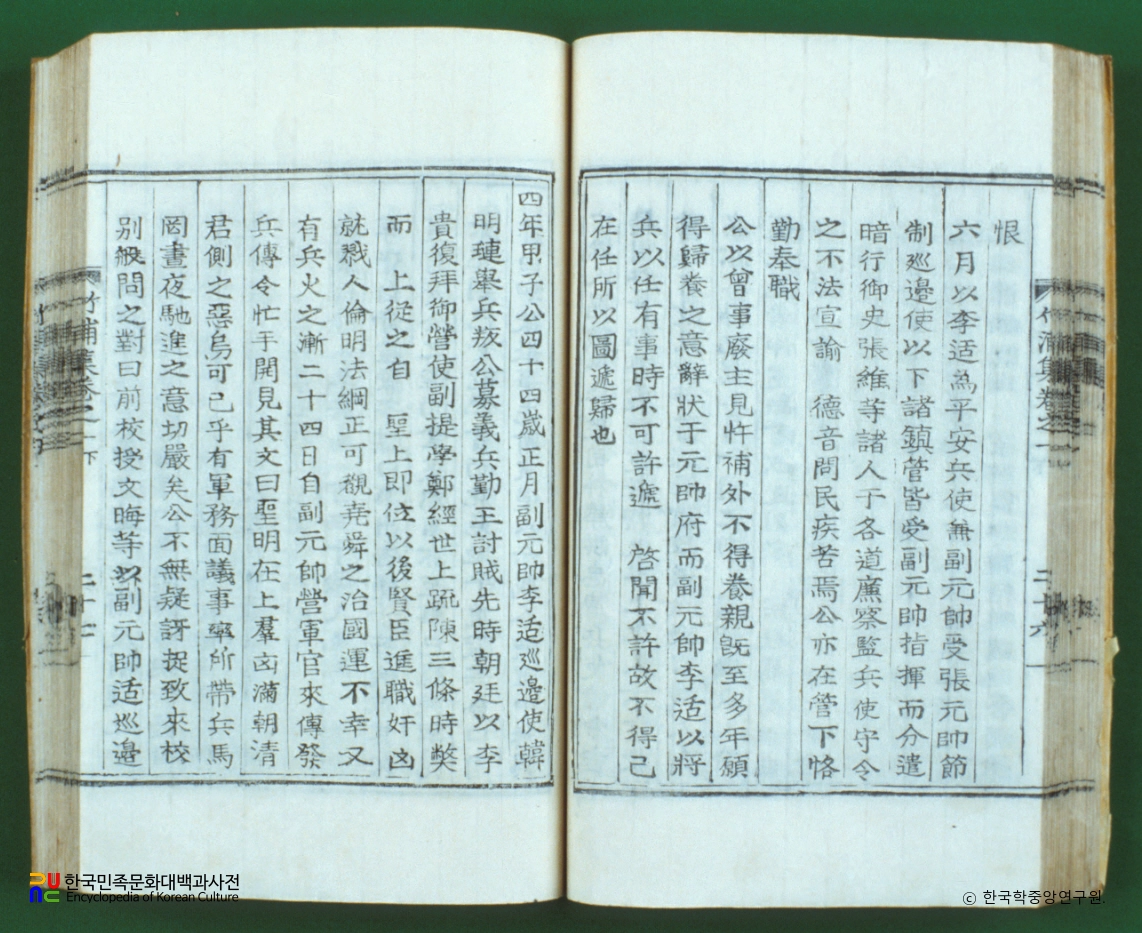 恨
六月以李适爲平安兵使兼副元帥受張元帥節
制廵邊使以下諸鎭管皆受副元帥指揮而分遣
暗行御史張維等諸人于各道廉察監兵使守令
之不法宣諭 德音問民疾苦焉公亦在管下恪
勤奉職
公以曾事廢主見忤補外不得養親旣至多年願
得歸養之意辭狀于元帥府而副元帥李适以將
兵以任有事時不可許遞 啓聞不許故不得已
在任所以圖遞歸也
四年甲子公四十四歲正月副元帥李适巡邊使韓
明璉擧兵叛公募義兵勤王討賊先時朝廷以李
貴復拜御營使副提學鄭經世上疏陳三條時獘
而 上從之自 聖上卽位以後賢臣進職奸凶
就戮人倫明法綱正可觀堯舜之治國運不幸又
有兵火之漸二十四日自副元帥營軍官來傳發
兵傳令忙手開見其文曰聖明在上羣凶滿朝淸
君側之惡烏可已乎有軍務面議事率所帶兵馬
罔晝夜馳進之意切嚴矣公不無疑訝捉致來校
別般問之對曰前校授文晦等以副元帥适巡邊
竹浦集卷之一 下
二十七
二十六
한국민족문화대백과사전
Encyclopedia of Korean Culture
ⓒ 한국학중앙연구원